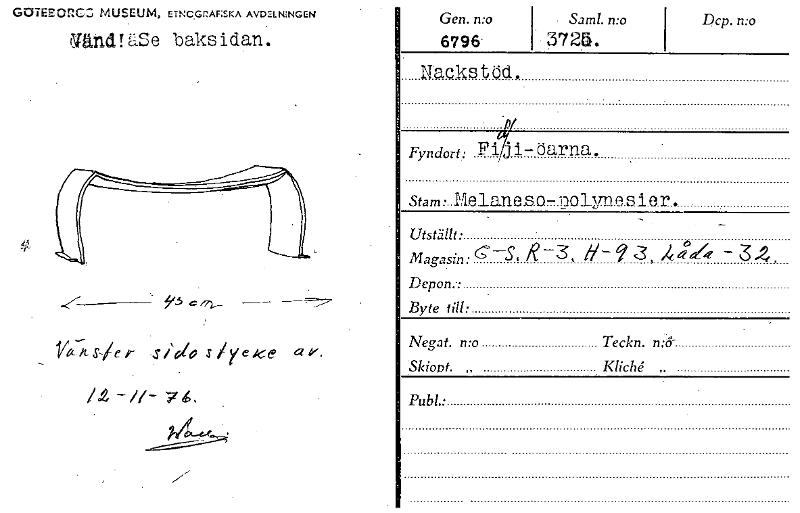 GÖTEBORGS MUSEUM, ETNOGRAFISKA AVDELNINGEN
Vänd! Se baksidan.
45 cm
Vänster sidostycke av.
12-11-76.
Gen. n:o
Saml. n:o
Dep. n:o
6796
Nackstöd.
Fyndort: Fidji-öarna.
Stam: Melaneso-polynesier.
Utställt:
Magasin: G-S, R-3, H-93, Låda-32.
Depon.:
Byte till:
Negat. n:o
Teckn. n:o
Skiopt. „
Kliché „
Publ.: